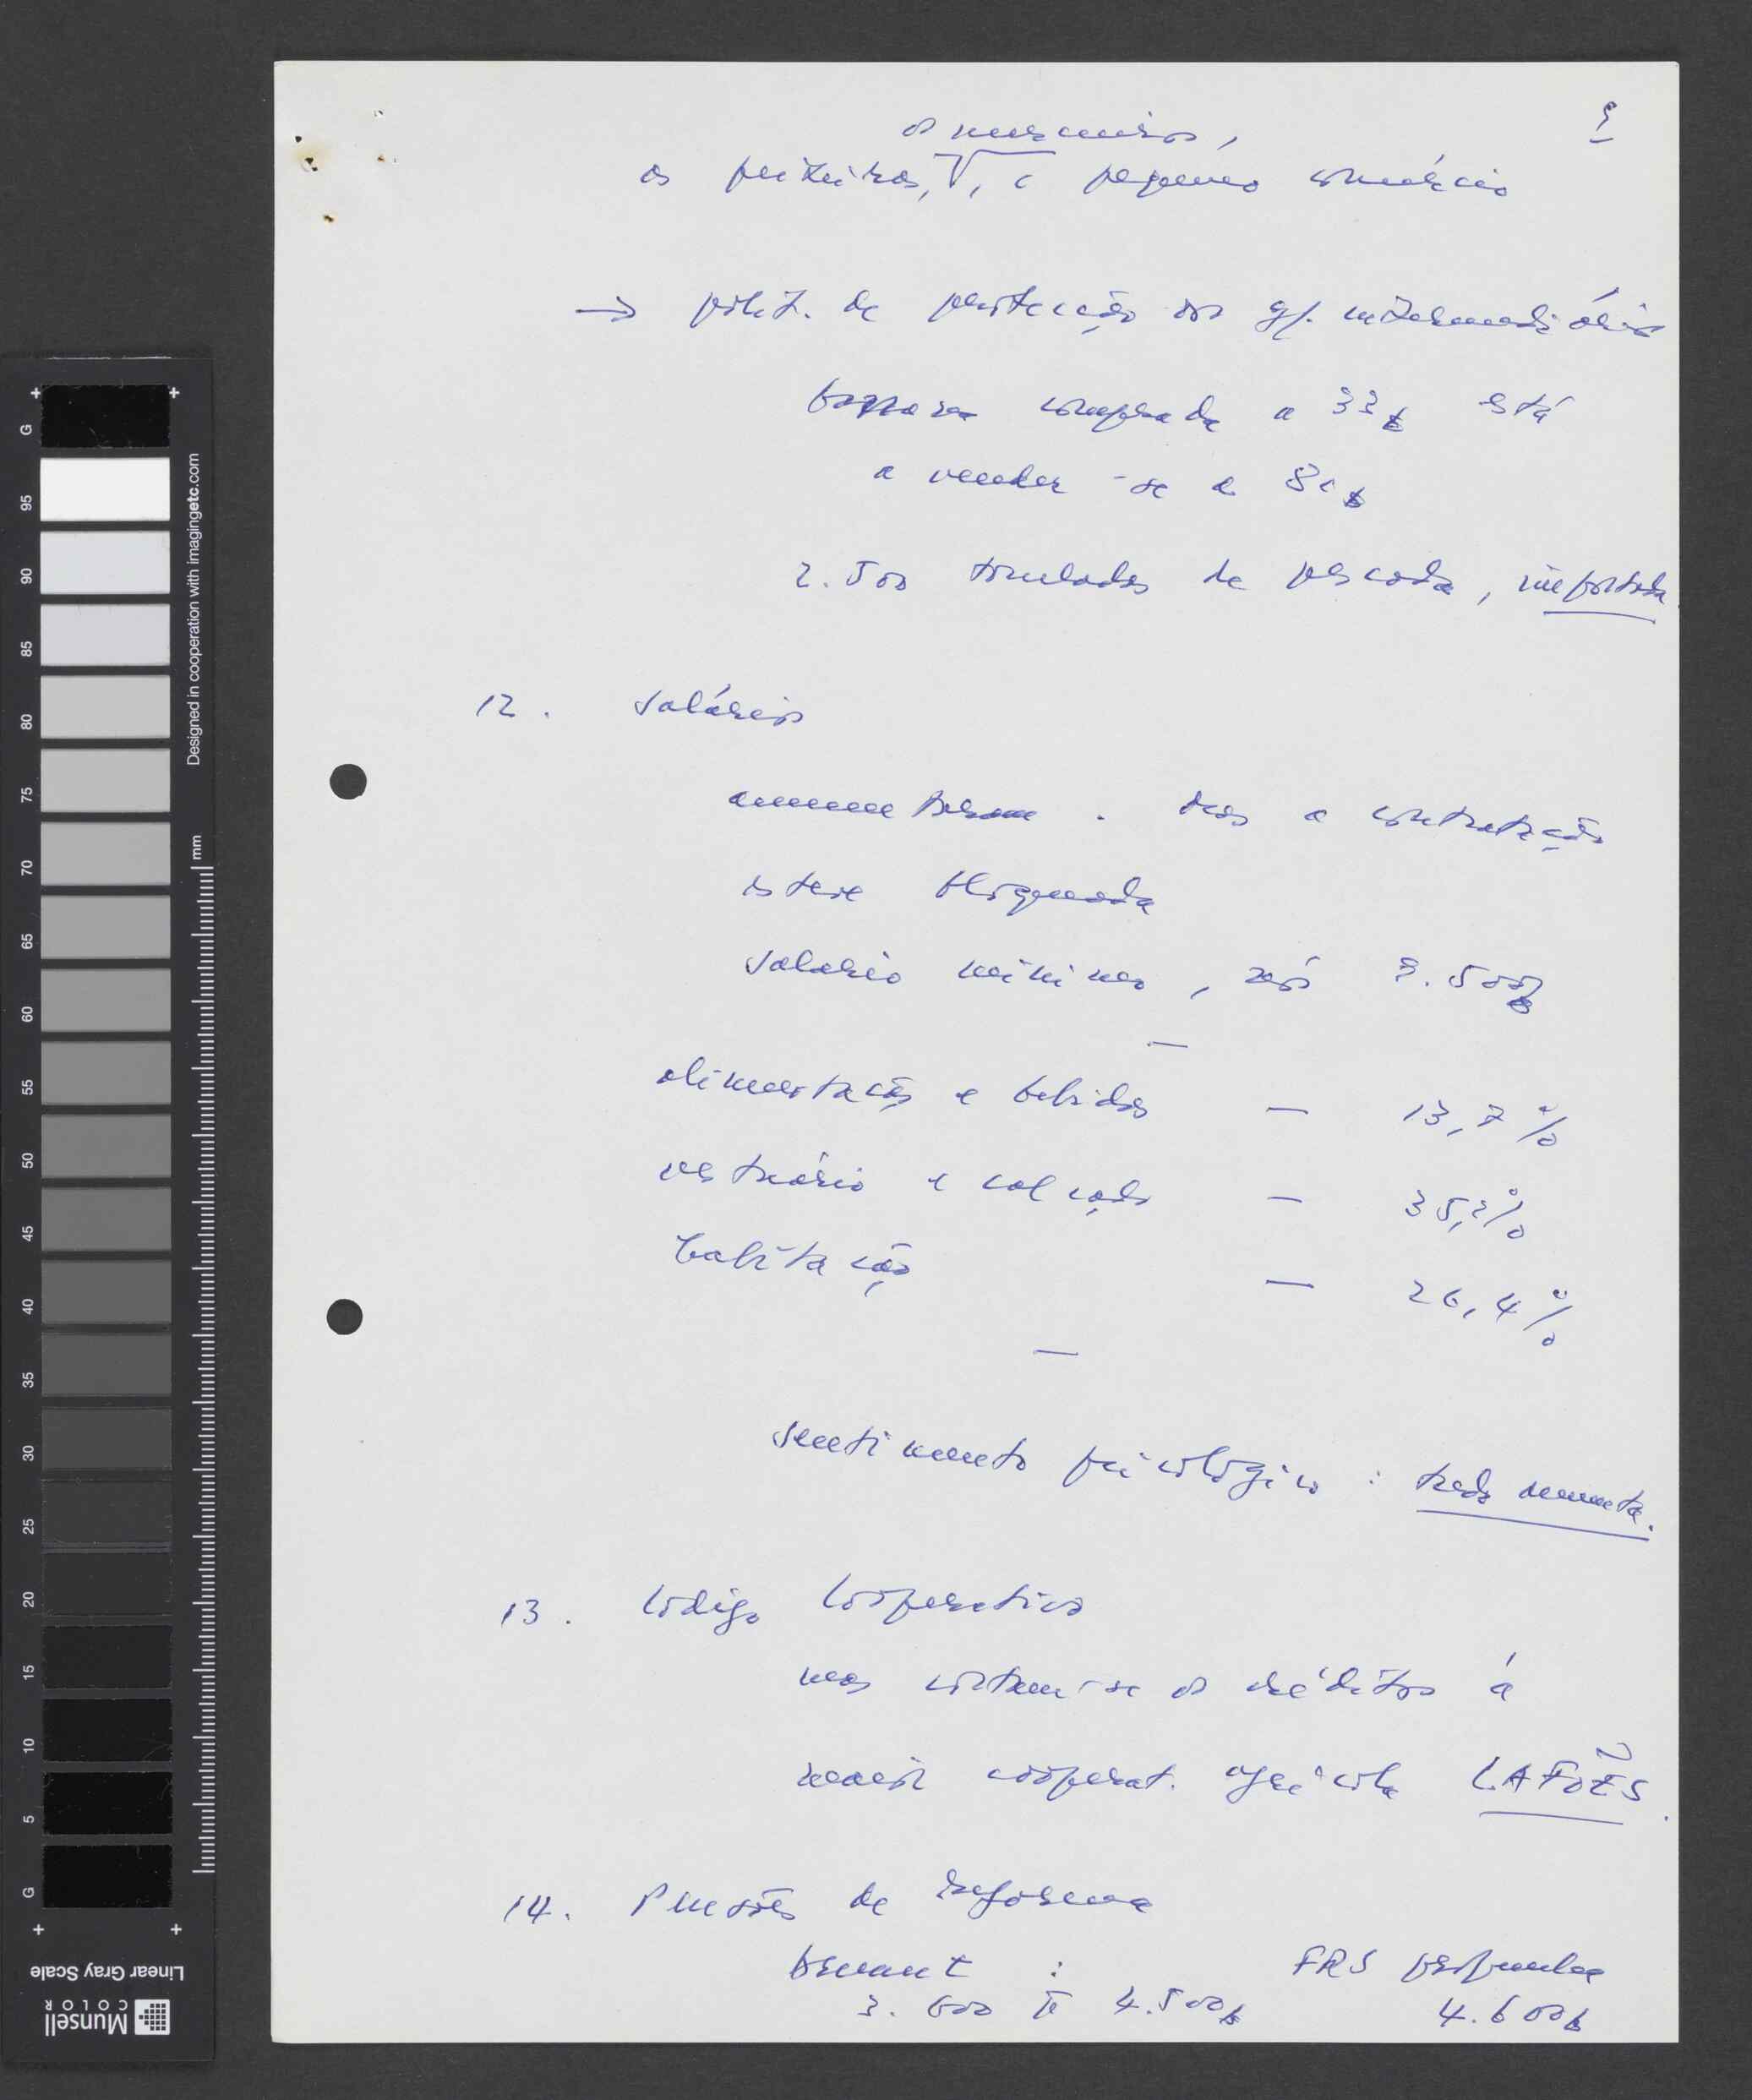 9
os merceeiros,
os peixeiros, , o pequeno comércio
→ polít. de protecção aos gr. intermediários
comprada a 33$ está
a vender-se a 80$
2.500 toneladas de pescada, importada
12. Salários
aumentaram. Mas a contratação
esteve bloqueada
Salário mínimo, só 7.500$
—
alimentação e bebidas — 13,7%
vestuário e calçado — 35,2%
habitação — 26,4%
—
sentimento psicológico: tudo aumenta.
13. Código Cooperativo
mas cortam-se os créditos à
maior cooperat. agrícola LAFÕES.
14. Pensões de reforma
: FRS propunha
3.600 4.500$ 4.600$
G
95
90
85
80
75
70
65
60
55
50
45
40
35
30
25
20
15
10
5
G
mm
Designed in cooperation with imagingetc.com
Linear Gray Scale
Munsell
COLOR